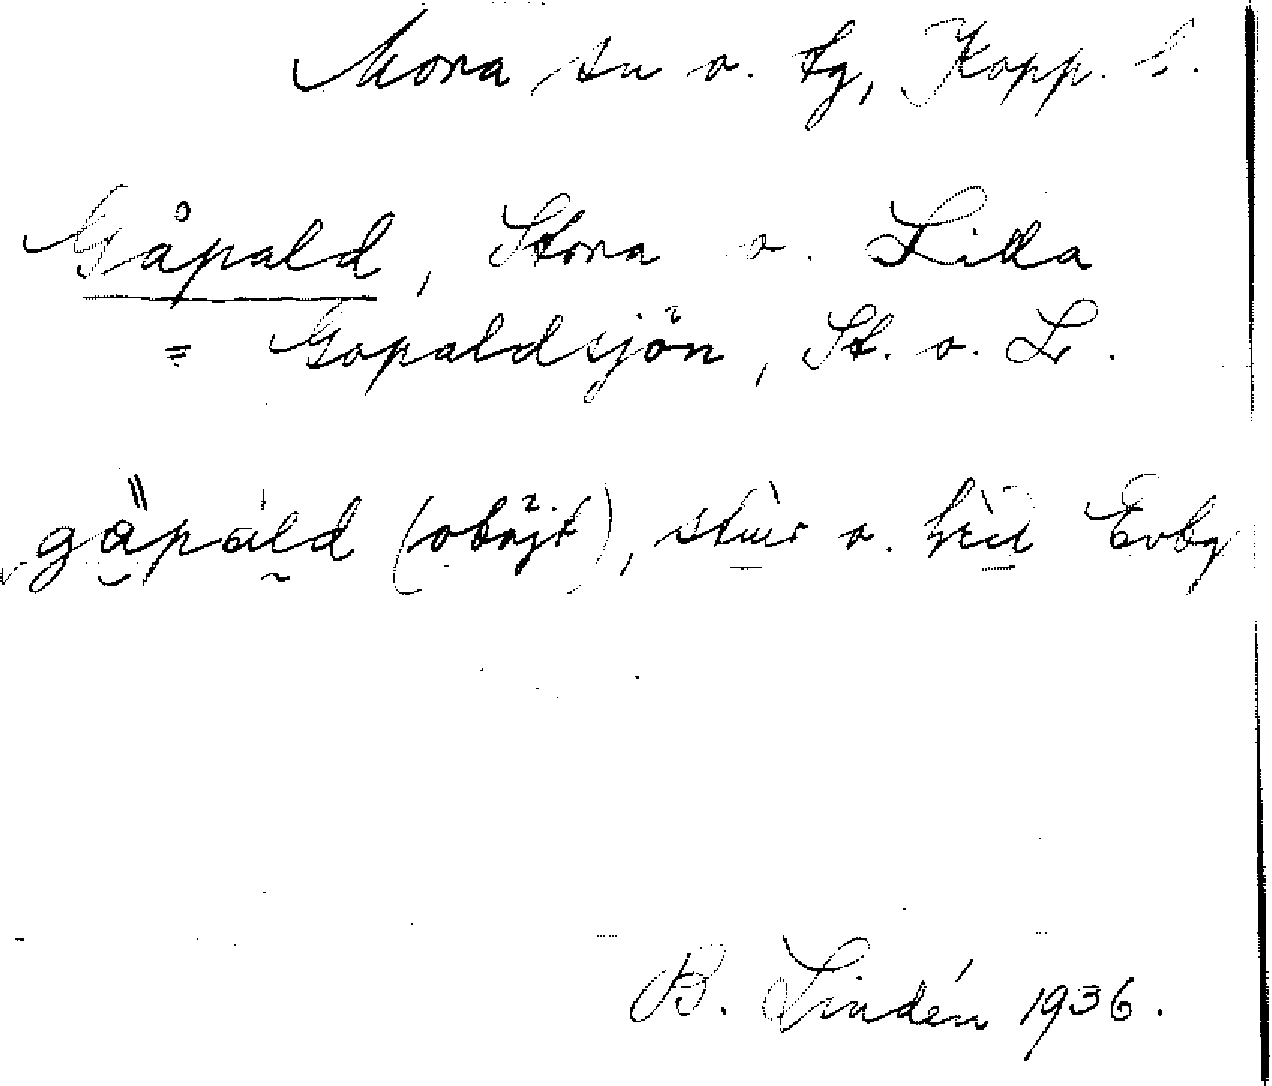 Mora sn o. tg, Kopp. l.
Gåpald, Stora o. Lilla
= Gopaldsjön, St. o. L.
gåpåld (oböjt), o. Evby
B. Lindén 1936.